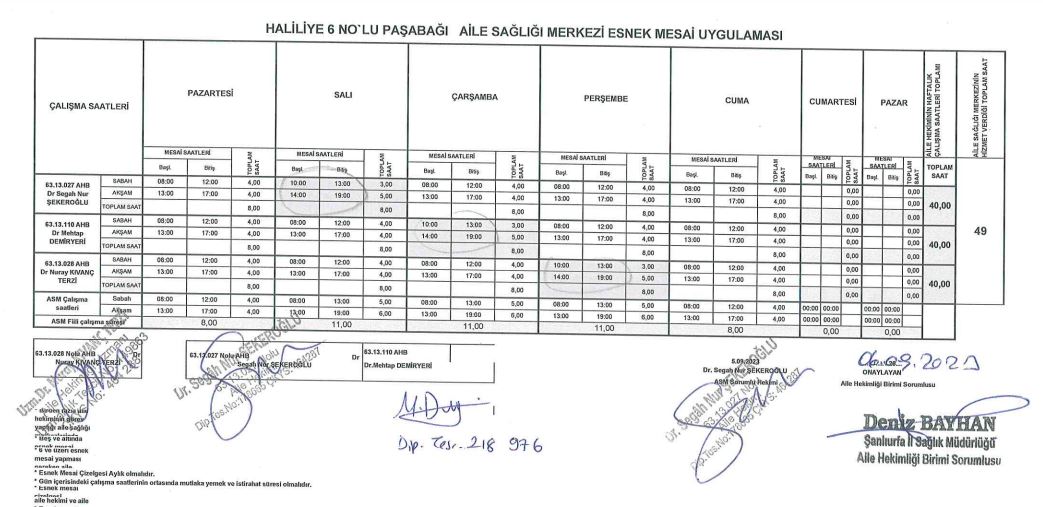 HALİLİYE 6 NO`LU PAŞABAĞI AİLE SAĞLIĞI MERKEZİ ESNEK MESAİ UYGULAMASI
ÇALIŞMA SAATLERİ PAZARTESİ SALI ÇARŞAMBA PERŞEMBE CUMA CUMARTESİ PAZAR AİLE HEKİMİNİN HAFTALIK ÇALIŞMA SAATLERİ TOPLAMI AİLE SAĞLIĞI MERKEZİNİN HİZMET VERDİĞİ TOPLAM SAAT
MESAİ SAATLERİ TOPLAM SAAT MESAİ SAATLERİ TOPLAM SAAT MESAİ SAATLERİ TOPLAM SAAT MESAİ SAATLERİ TOPLAM SAAT MESAİ SAATLERİ TOPLAM SAAT MESAİ SAATLERİ TOPLAM SAAT MESAİ SAATLERİ TOPLAM SAAT TOPLAM SAAT
Başl. Bitiş Başl. Bitiş Başl. Bitiş Başl. Bitiş Başl. Bitiş Başl. Bitiş Başl. Bitiş
63.13.027 AHB Dr Segah Nur ŞEKEROĞLU
SABAH 08:00 12:00 4,00 10:00 13:00 3,00 08:00 12:00 4,00 08:00 12:00 4,00 08:00 12:00 4,00 0,00 0,00
AKŞAM 13:00 17:00 4,00 14:00 19:00 5,00 13:00 17:00 4,00 13:00 17:00 4,00 13:00 17:00 4,00 0,00 0,00
TOPLAM SAAT 8,00 8,00 8,00 8,00 8,00 0,00 0,00 40,00
63.13.110 AHB Dr Mehtap DEMİRYERİ
SABAH 08:00 12:00 4,00 08:00 12:00 4,00 10:00 13:00 3,00 08:00 12:00 4,00 08:00 12:00 4,00 0,00 0,00
AKŞAM 13:00 17:00 4,00 13:00 17:00 4,00 14:00 19:00 5,00 13:00 17:00 4,00 13:00 17:00 4,00 0,00 0,00
TOPLAM SAAT 8,00 8,00 8,00 8,00 8,00 0,00 0,00 40,00
49
63.13.028 AHB Dr Nuray KIVANÇ TERZİ
SABAH 08:00 12:00 4,00 08:00 12:00 4,00 08:00 12:00 4,00 10:00 13:00 3,00 08:00 12:00 4,00 0,00 0,00
AKŞAM 13:00 17:00 4,00 13:00 17:00 4,00 13:00 17:00 4,00 14:00 19:00 5,00 13:00 17:00 4,00 0,00 0,00
TOPLAM SAAT 8,00 8,00 8,00 8,00 8,00 0,00 0,00 40,00
ASM Çalışma saatleri
Sabah 08:00 12:00 4,00 08:00 13:00 5,00 08:00 13:00 5,00 08:00 13:00 5,00 08:00 12:00 4,00 00:00 00:00 00:00 00:00
Akşam 13:00 17:00 4,00 13:00 19:00 6,00 13:00 19:00 6,00 13:00 19:00 6,00 13:00 17:00 4,00 00:00 00:00 00:00 00:00
ASM Fiili çalışma süresi 8,00 11,00 11,00 11,00 8,00 0,00 0,00
63.13.028 Nolu AHB Dr
Nuray KIVANÇ TERZİ
63.13.027 Nolu AHB Dr
Segah Nur ŞEKEROĞLU
63.13.110 AHB
Dr.Mehtap DEMİRYERİ
Dip. Tesr. 218 976
5.09.2023
Dr. Segah Nur ŞEKEROĞLU
ASM Sorumlu Hekimi
ONAYLAYAN
Aile Hekimliği Birimi Sorumlusu
Deniz BAYHAN
Şanlıurfa İl Sağlık Müdürlüğü
Aile Hekimliği Birimi Sorumlusu
yapan aile sağlığı
* Beş ve altında
esnek mesai
* 6 ve üzeri esnek
mesai yapması
gereken aile
* Esnek Mesai Çizelgesi Aylık olmalıdır.
* Gün içerisindeki çalışma saatlerinin ortasında mutlaka yemek ve istirahat süresi olmalıdır.
* Esnek mesai
çizelgesi
aile hekimi ve aile